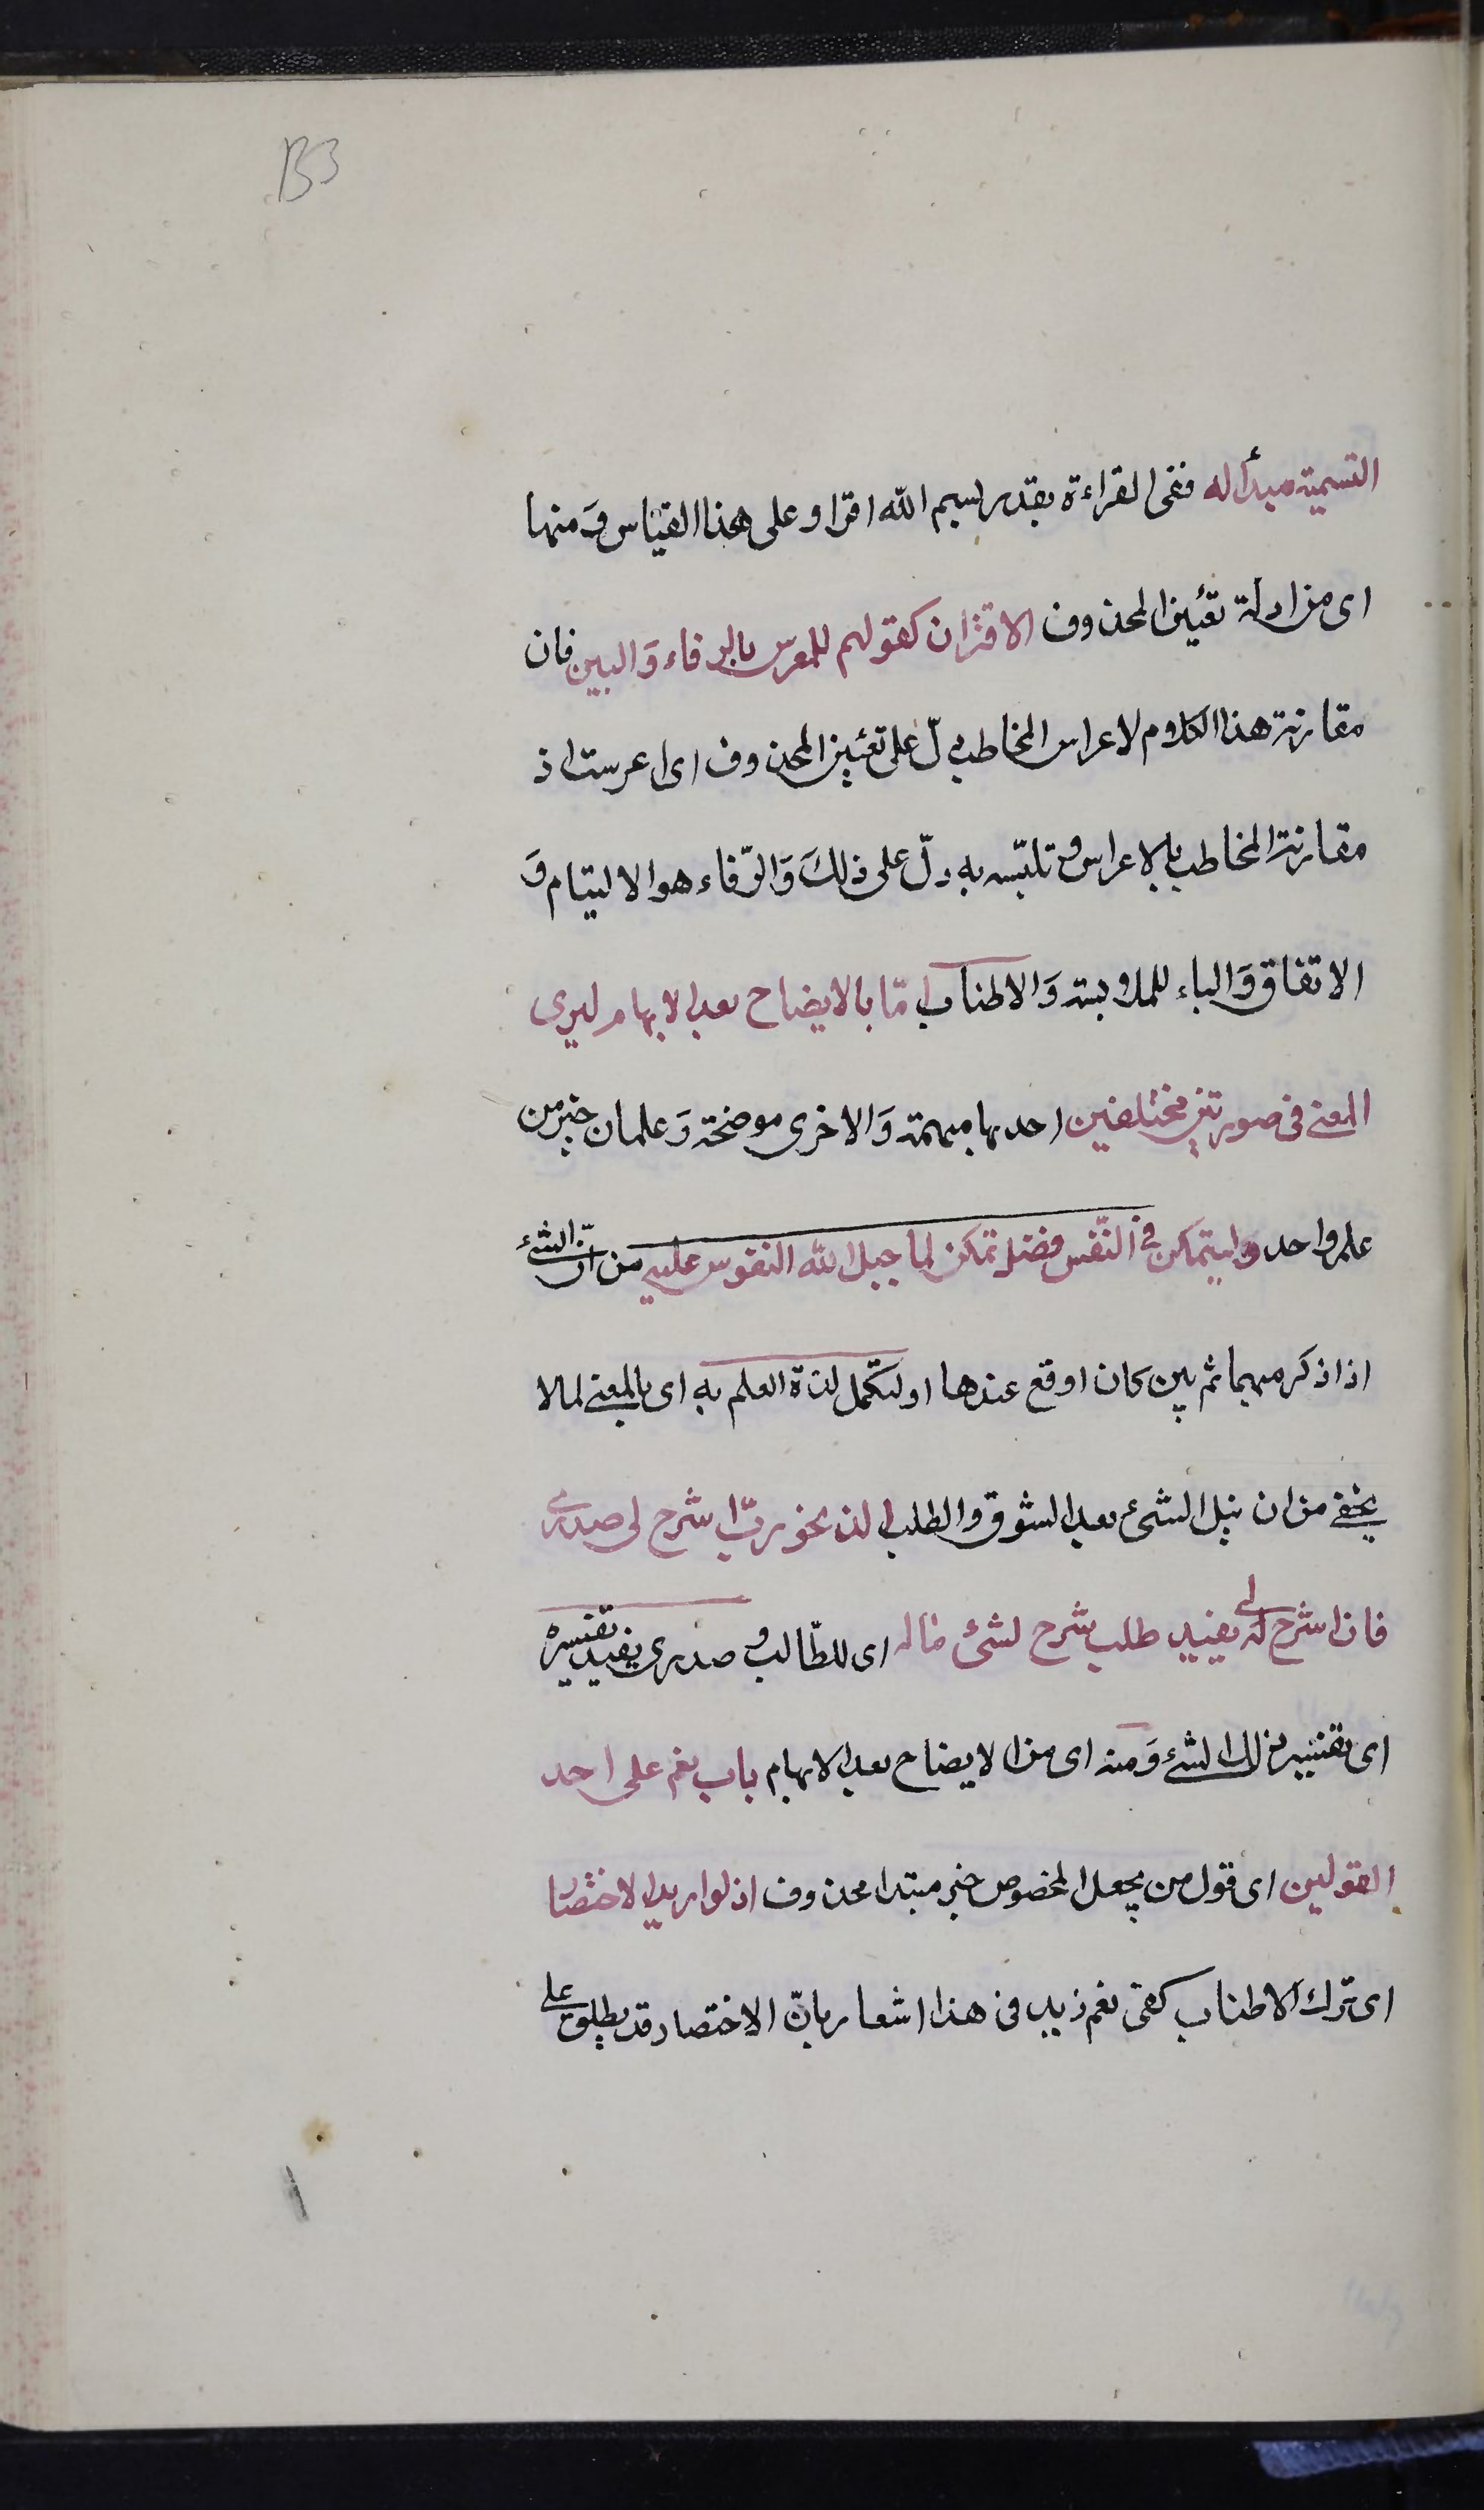 133
التسمية مبدأ له ففى القراءة يقدر بسم الله اقرا وعلى هذا القياس وَمنها
اى من ادلة تعيين المحذوف الاقتران كقولهم للمعرس بالرفاء وَالبين فان
مقارنة هذا الكلام لاعراس المخاطب دلّ على تعيين المحذوف اى اعرست اذ
مقارنة المخاطب بالاعراس وتلبّسه به دلّ على ذلكَ وَالرّفاء هو الاليتام وَ
الاتفاق وَالباء للملابسة وَالاطناب امّا بالايضاح بعد الابهام ليرى
المعنى فى صورتين مختلفين احديها مبهمة وَالاخرى موضحة وَعلمان خير من
علم واحد وليتمكن فى النّفس فضل تمكن لما جبل الله النفوس عليه من انّ الشئ
اذا ذكر مبهما ثم بين كان اوقع عندها او لتكمل لذة العلم به اى بالمعنى لما لا
يخفى من ان نيل الشئ بعد الشوق والطلب الذ نحو ربّ اشرح لى صدرى
فان اشرح لى يفيد طلب شرح لشئ ما له اى للطّالب و صدرى يفيد تفسيره
اى تفسير ذلك الشئ وَمنه اى من الايضاح بعد الابهام باب نعم على احد
القولين اى قول من يجعل المخصوص خبر مبتدا محذوف اذ لو اريد الاختصار
اى ترك الاطناب كفى نعم زيد فى هذا اشعار بانّ الاختصار قد يطلق على